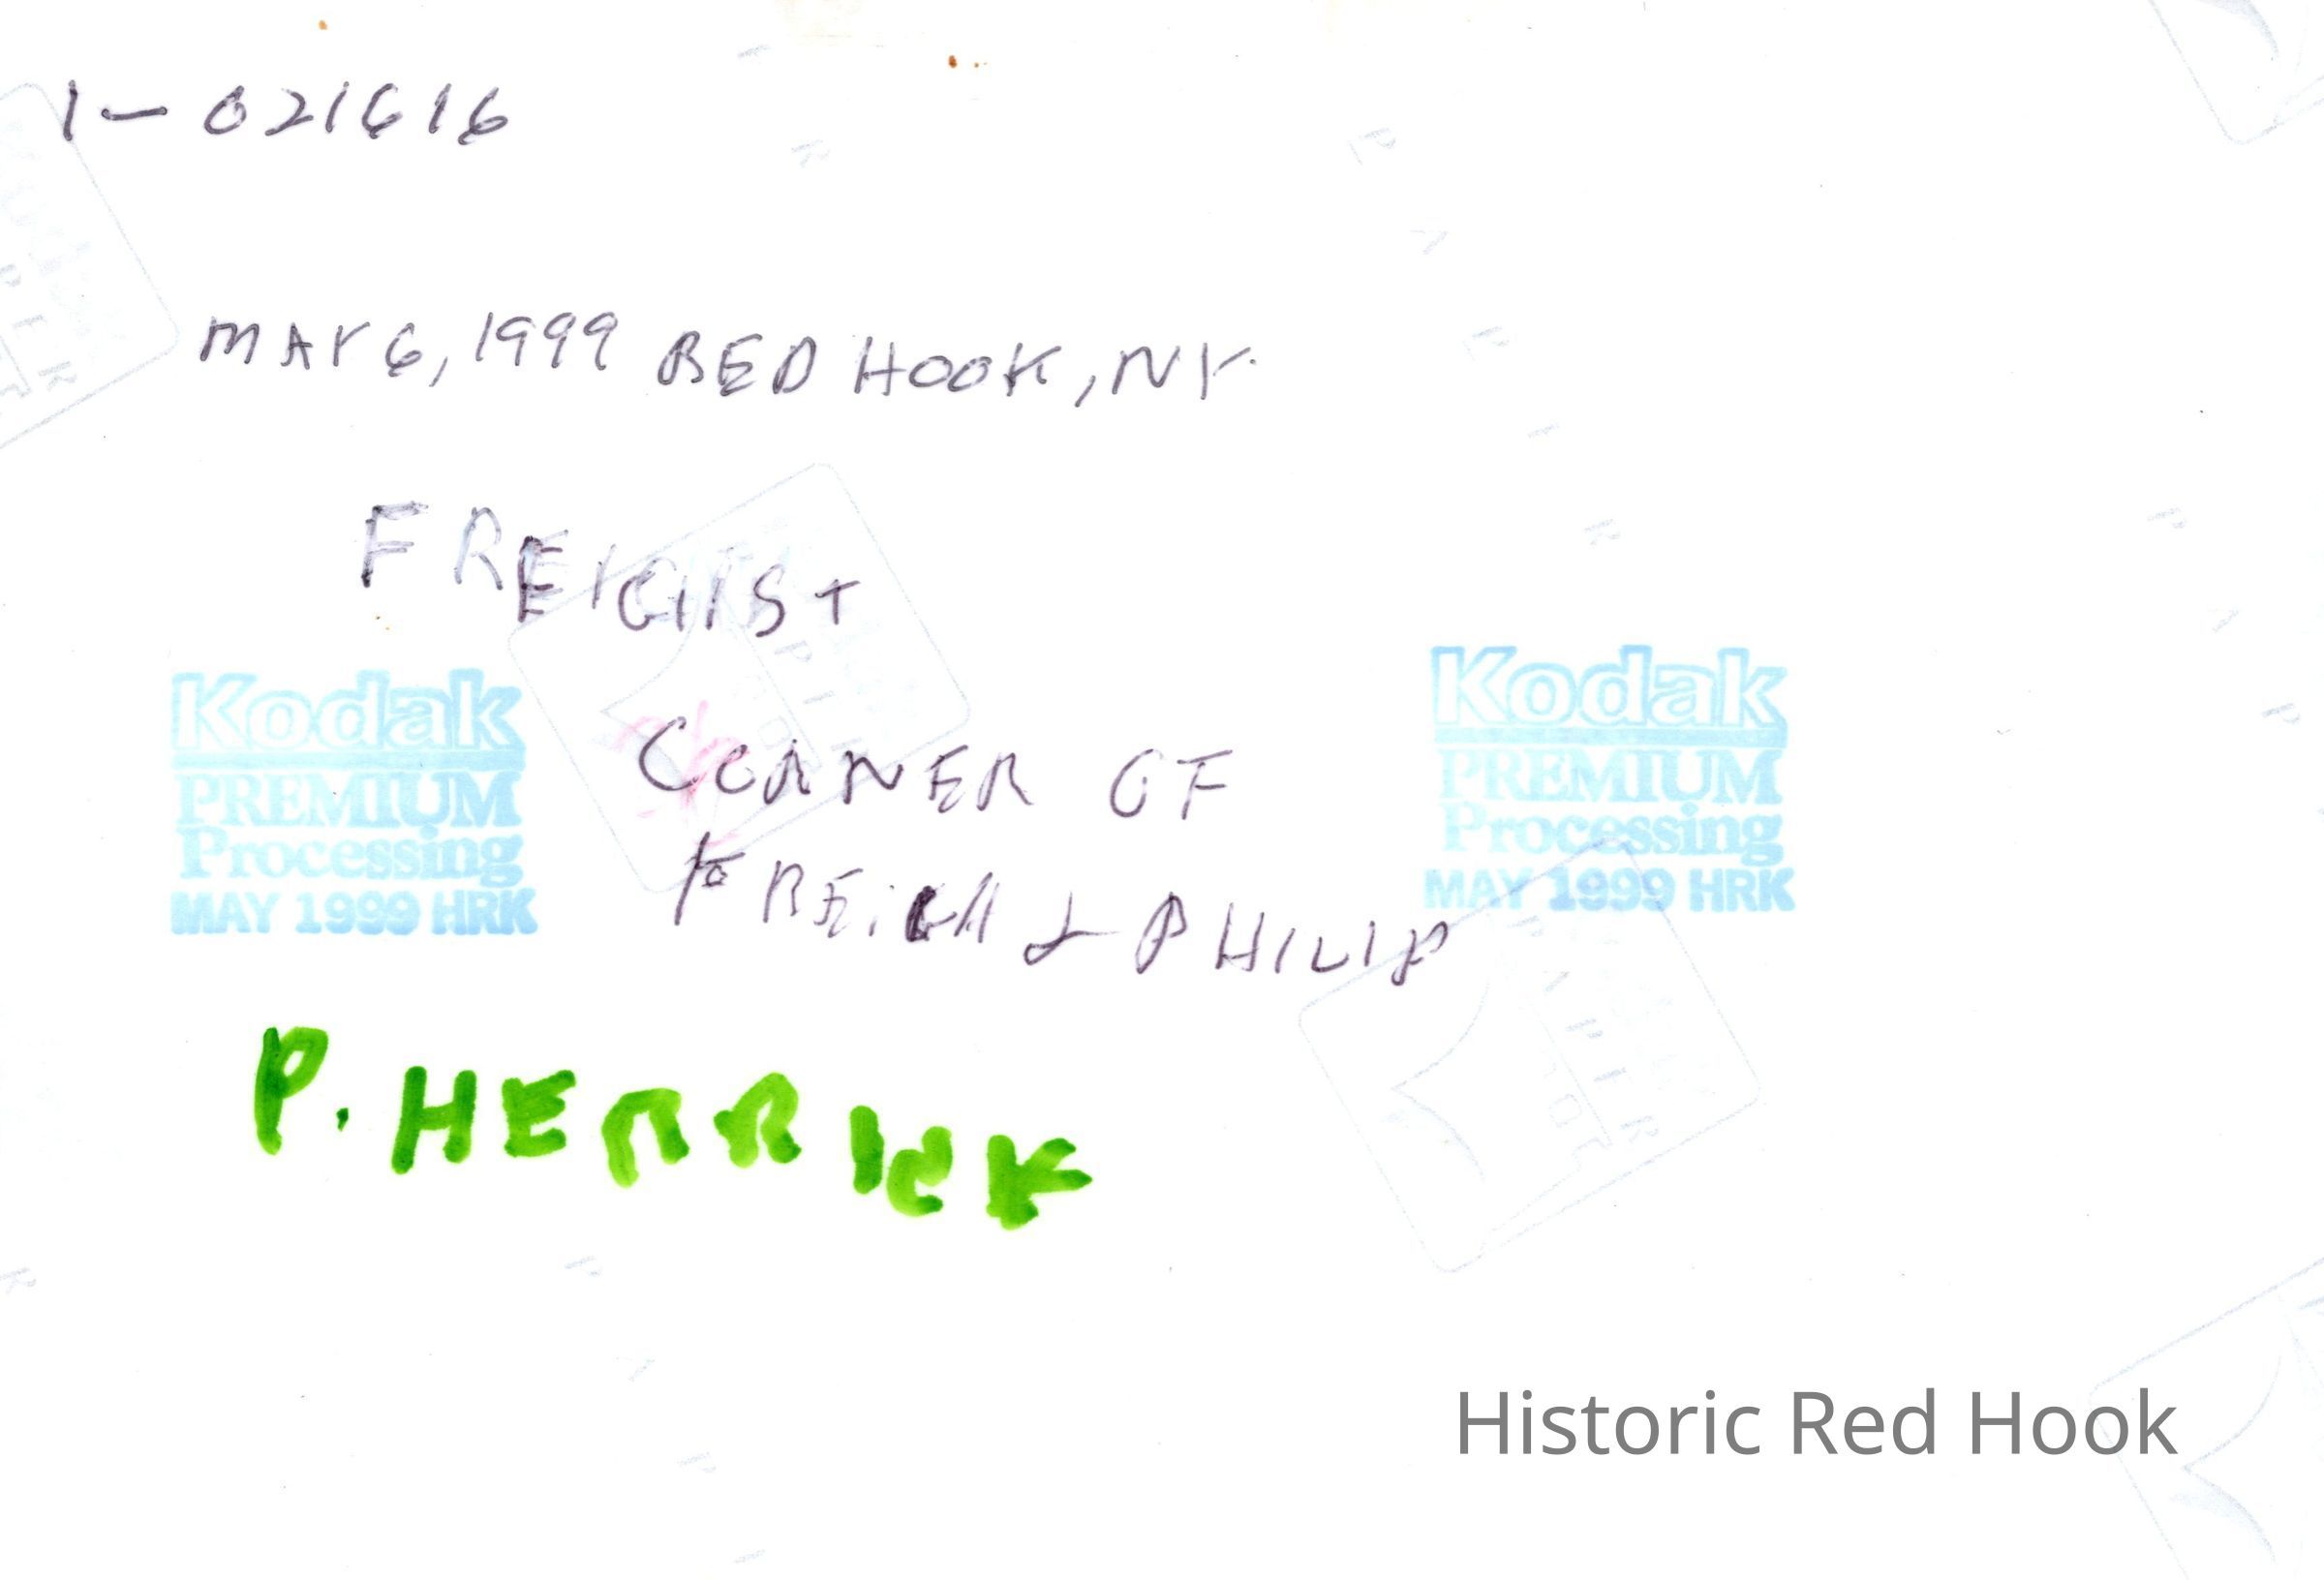 1-021616
MAY 6, 1999 RED HOOK, NY.
FREIGH ST
CORNER OF
FREIGH & PHILIP
Kodak
PREMIUM
Processing
MAY 1999 HRK
Kodak
PREMIUM
Processing
MAY 1999 HRK
P. HERRICK
Historic Red Hook